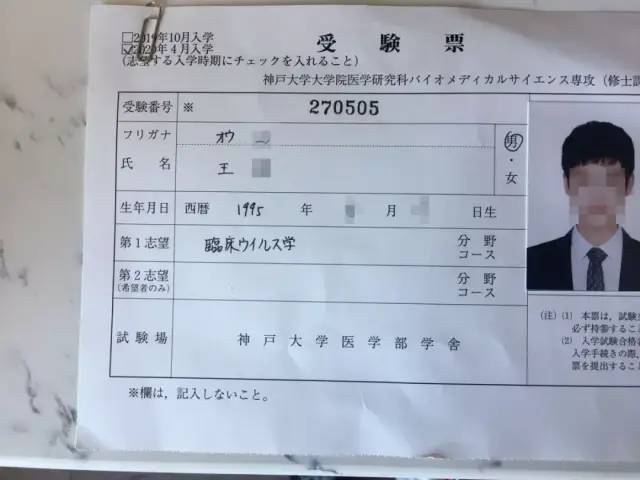 2019年10月入学
2020年4月入学
(志望する入学時期にチェックを入れること)
受験票
神戸大学大学院医学研究科バイオメディカルサイエンス専攻(修士課
受験番号 ※ 270505
フリガナ オウ
氏名 王
男・女
生年月日 西暦 1995 年 月 日生
第1志望 臨床ウイルス学 分野 コース
第2志望 (希望者のみ) 分野 コース
試験場 神戸大学医学部学舎
※欄は,記入しないこと。
(注) (1) 本票は,試験
必ず持参するこ
(2) 入学試験合格
入学手続きの際,
票を提出するこ